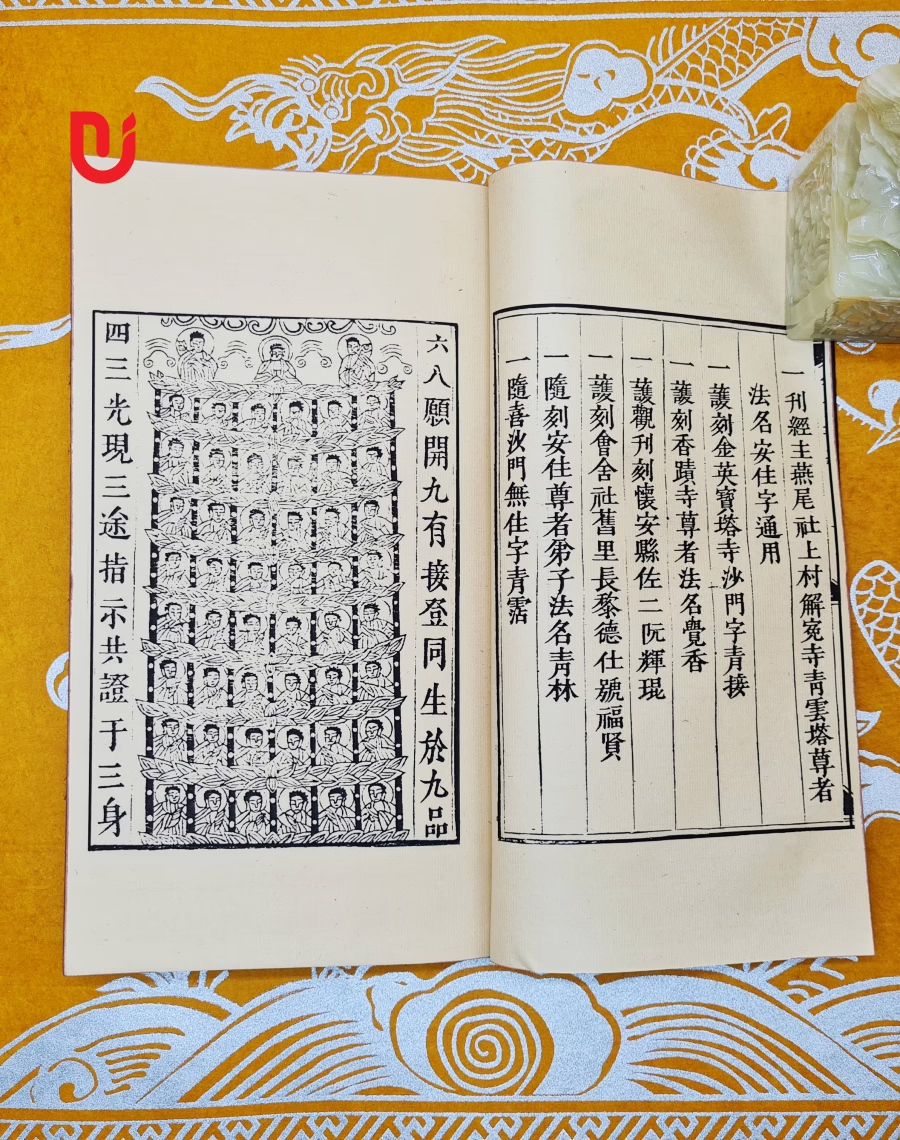 一刊經主燕尾社上村解寃寺青雲塔尊者
法名安住字通用
一護刻金英寶塔寺沙門字青接
一護刻香蹟寺尊者法名覺香
一護觀刊刻懷安縣佐二阮輝琨
一護刻會舍社舊里長黎德仕號福賢
一隨刻安住尊者弟子法名青林
一隨喜沙門無住字青霑
六八願開九有接登同生於九品
四三光現三途指示共證于三身